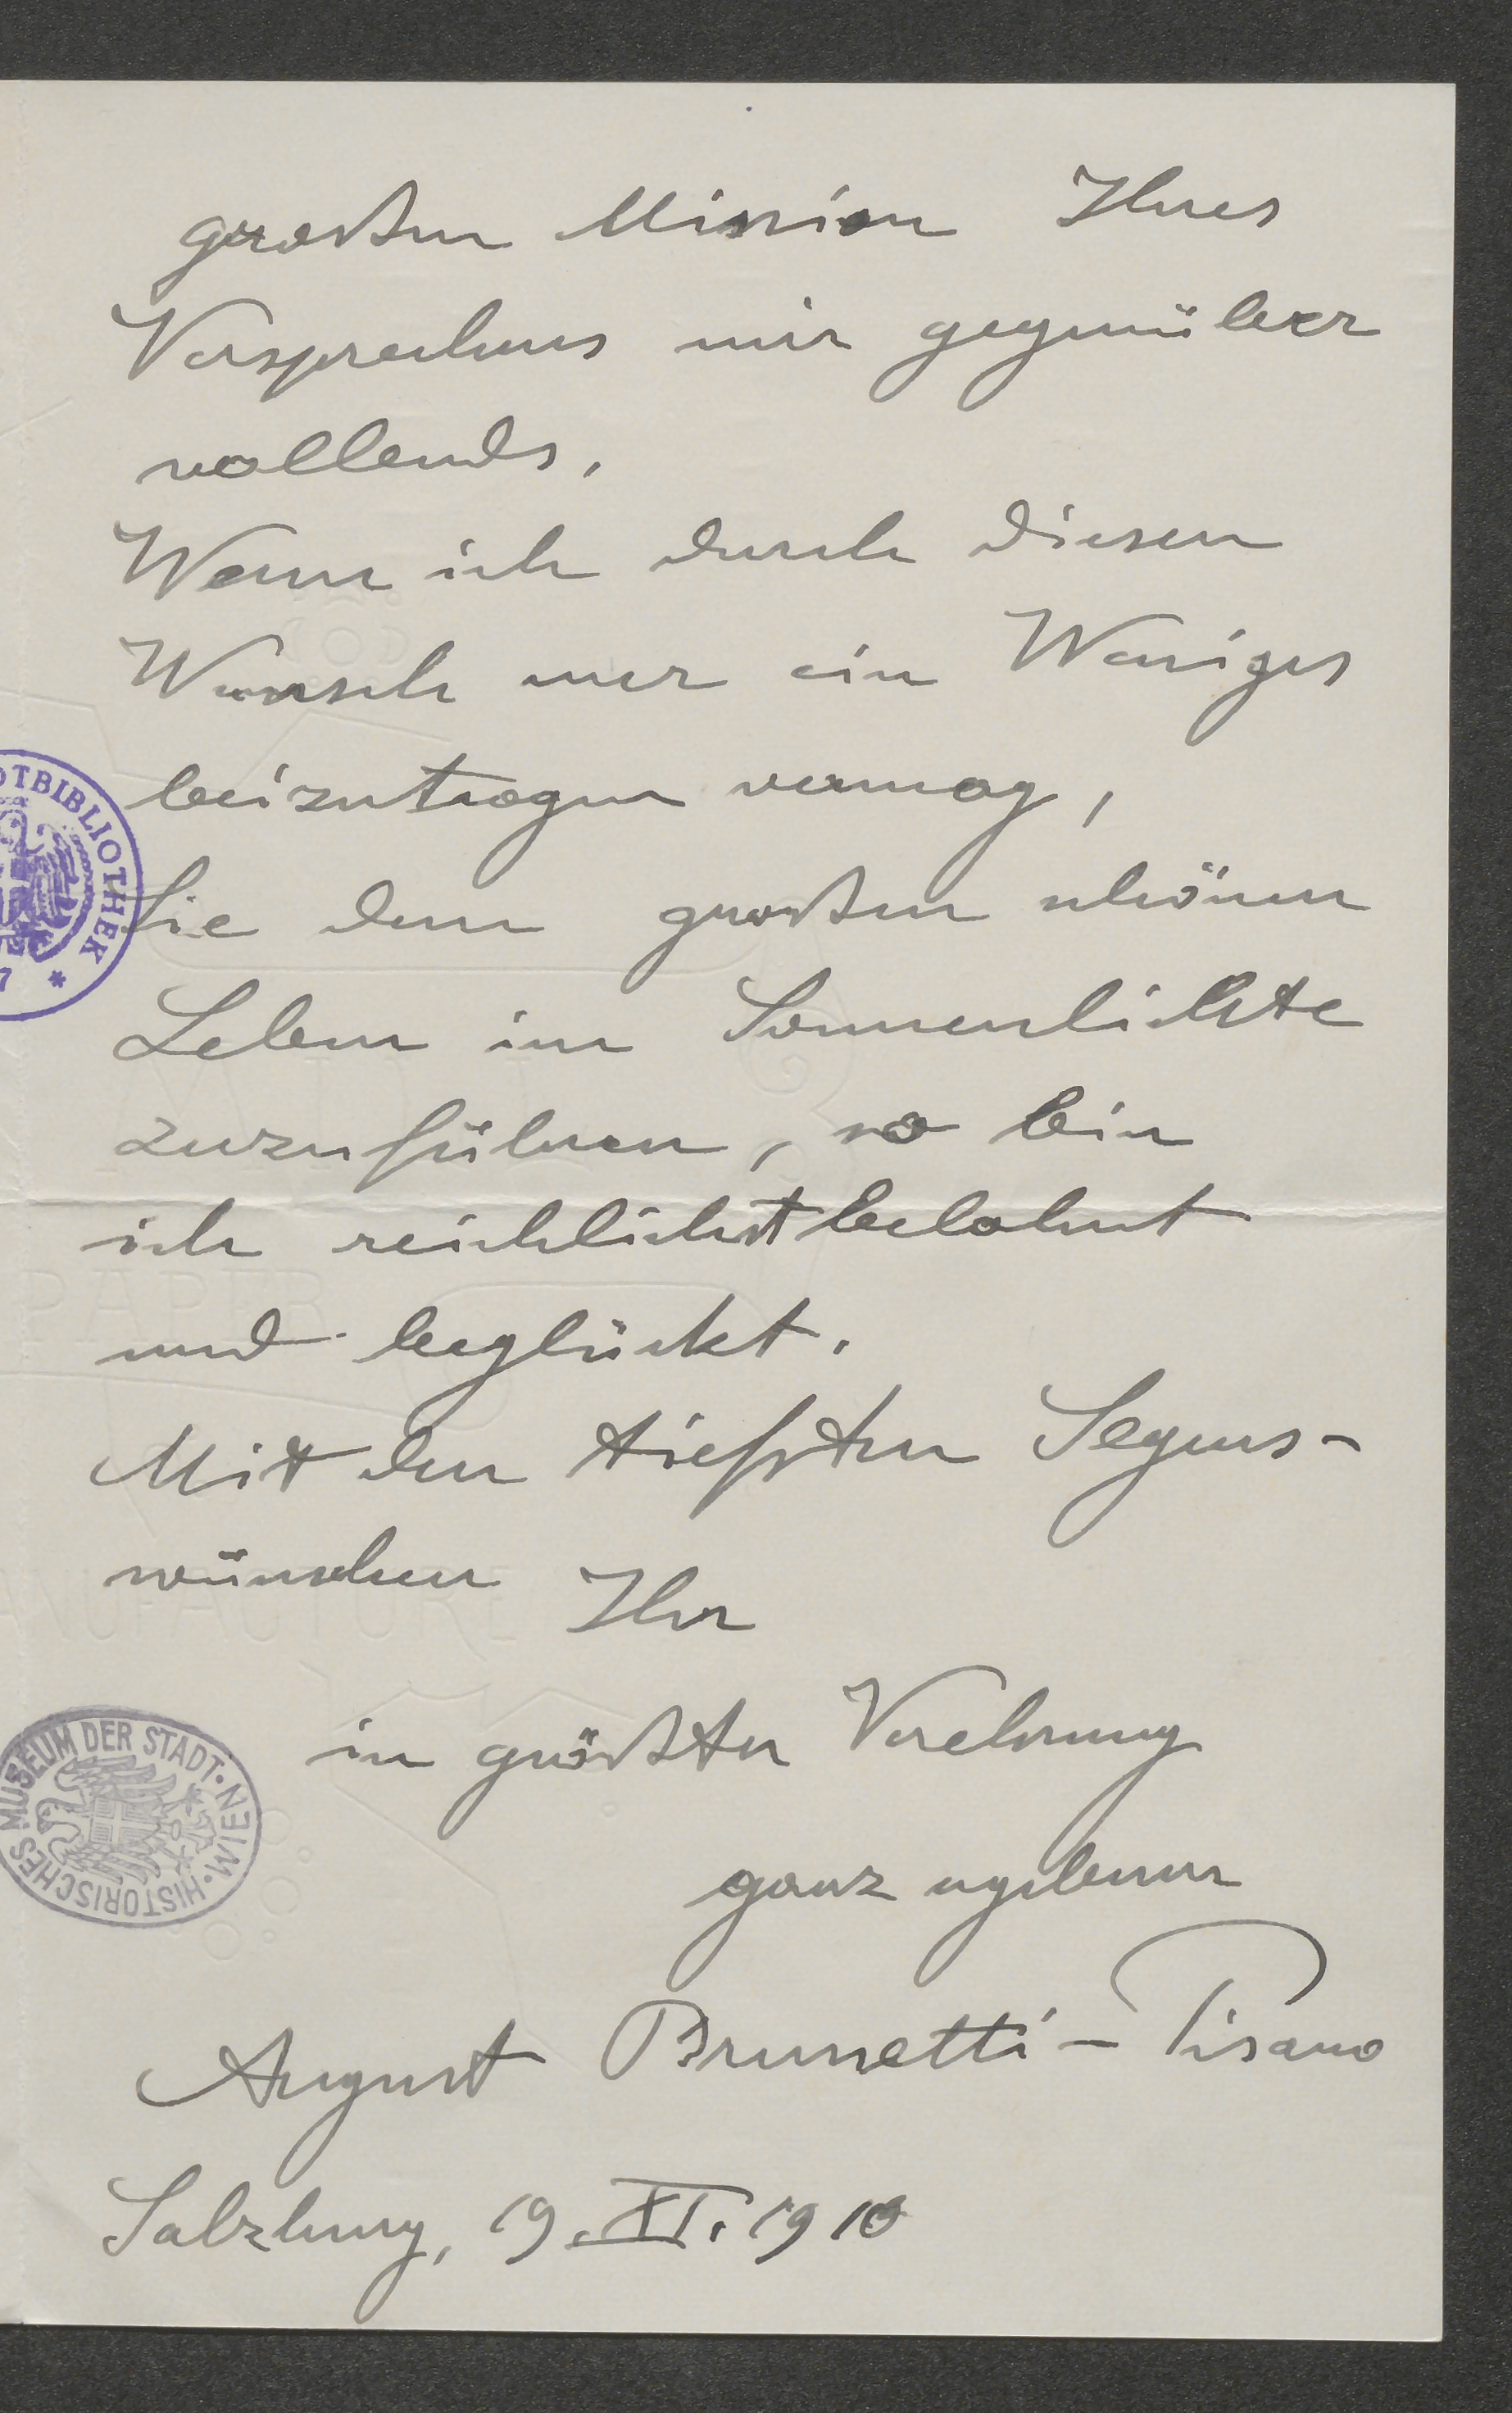 großen Mission Ihres
Versprechens mir gegenüber
vollends.
Wenn ich durch diesen
Wunsch nur ein Weniges
beizutragen vermag,
Sie dem großen schönen
Leben im Sonnenlichte
zuzuführen, so bin
ich reichlichst belohnt
und beglückt.
Mit den tiefsten Segens-
wünschen Ihr
in größter Verehrung
ganz ergebener
August Brunetti-Pisano
Salzburg, 19. XI. 1910
OTBIBLIOTHEK
7 *
HISTORISCHES MUSEUM DER STADT · WIEN ·
PAPER